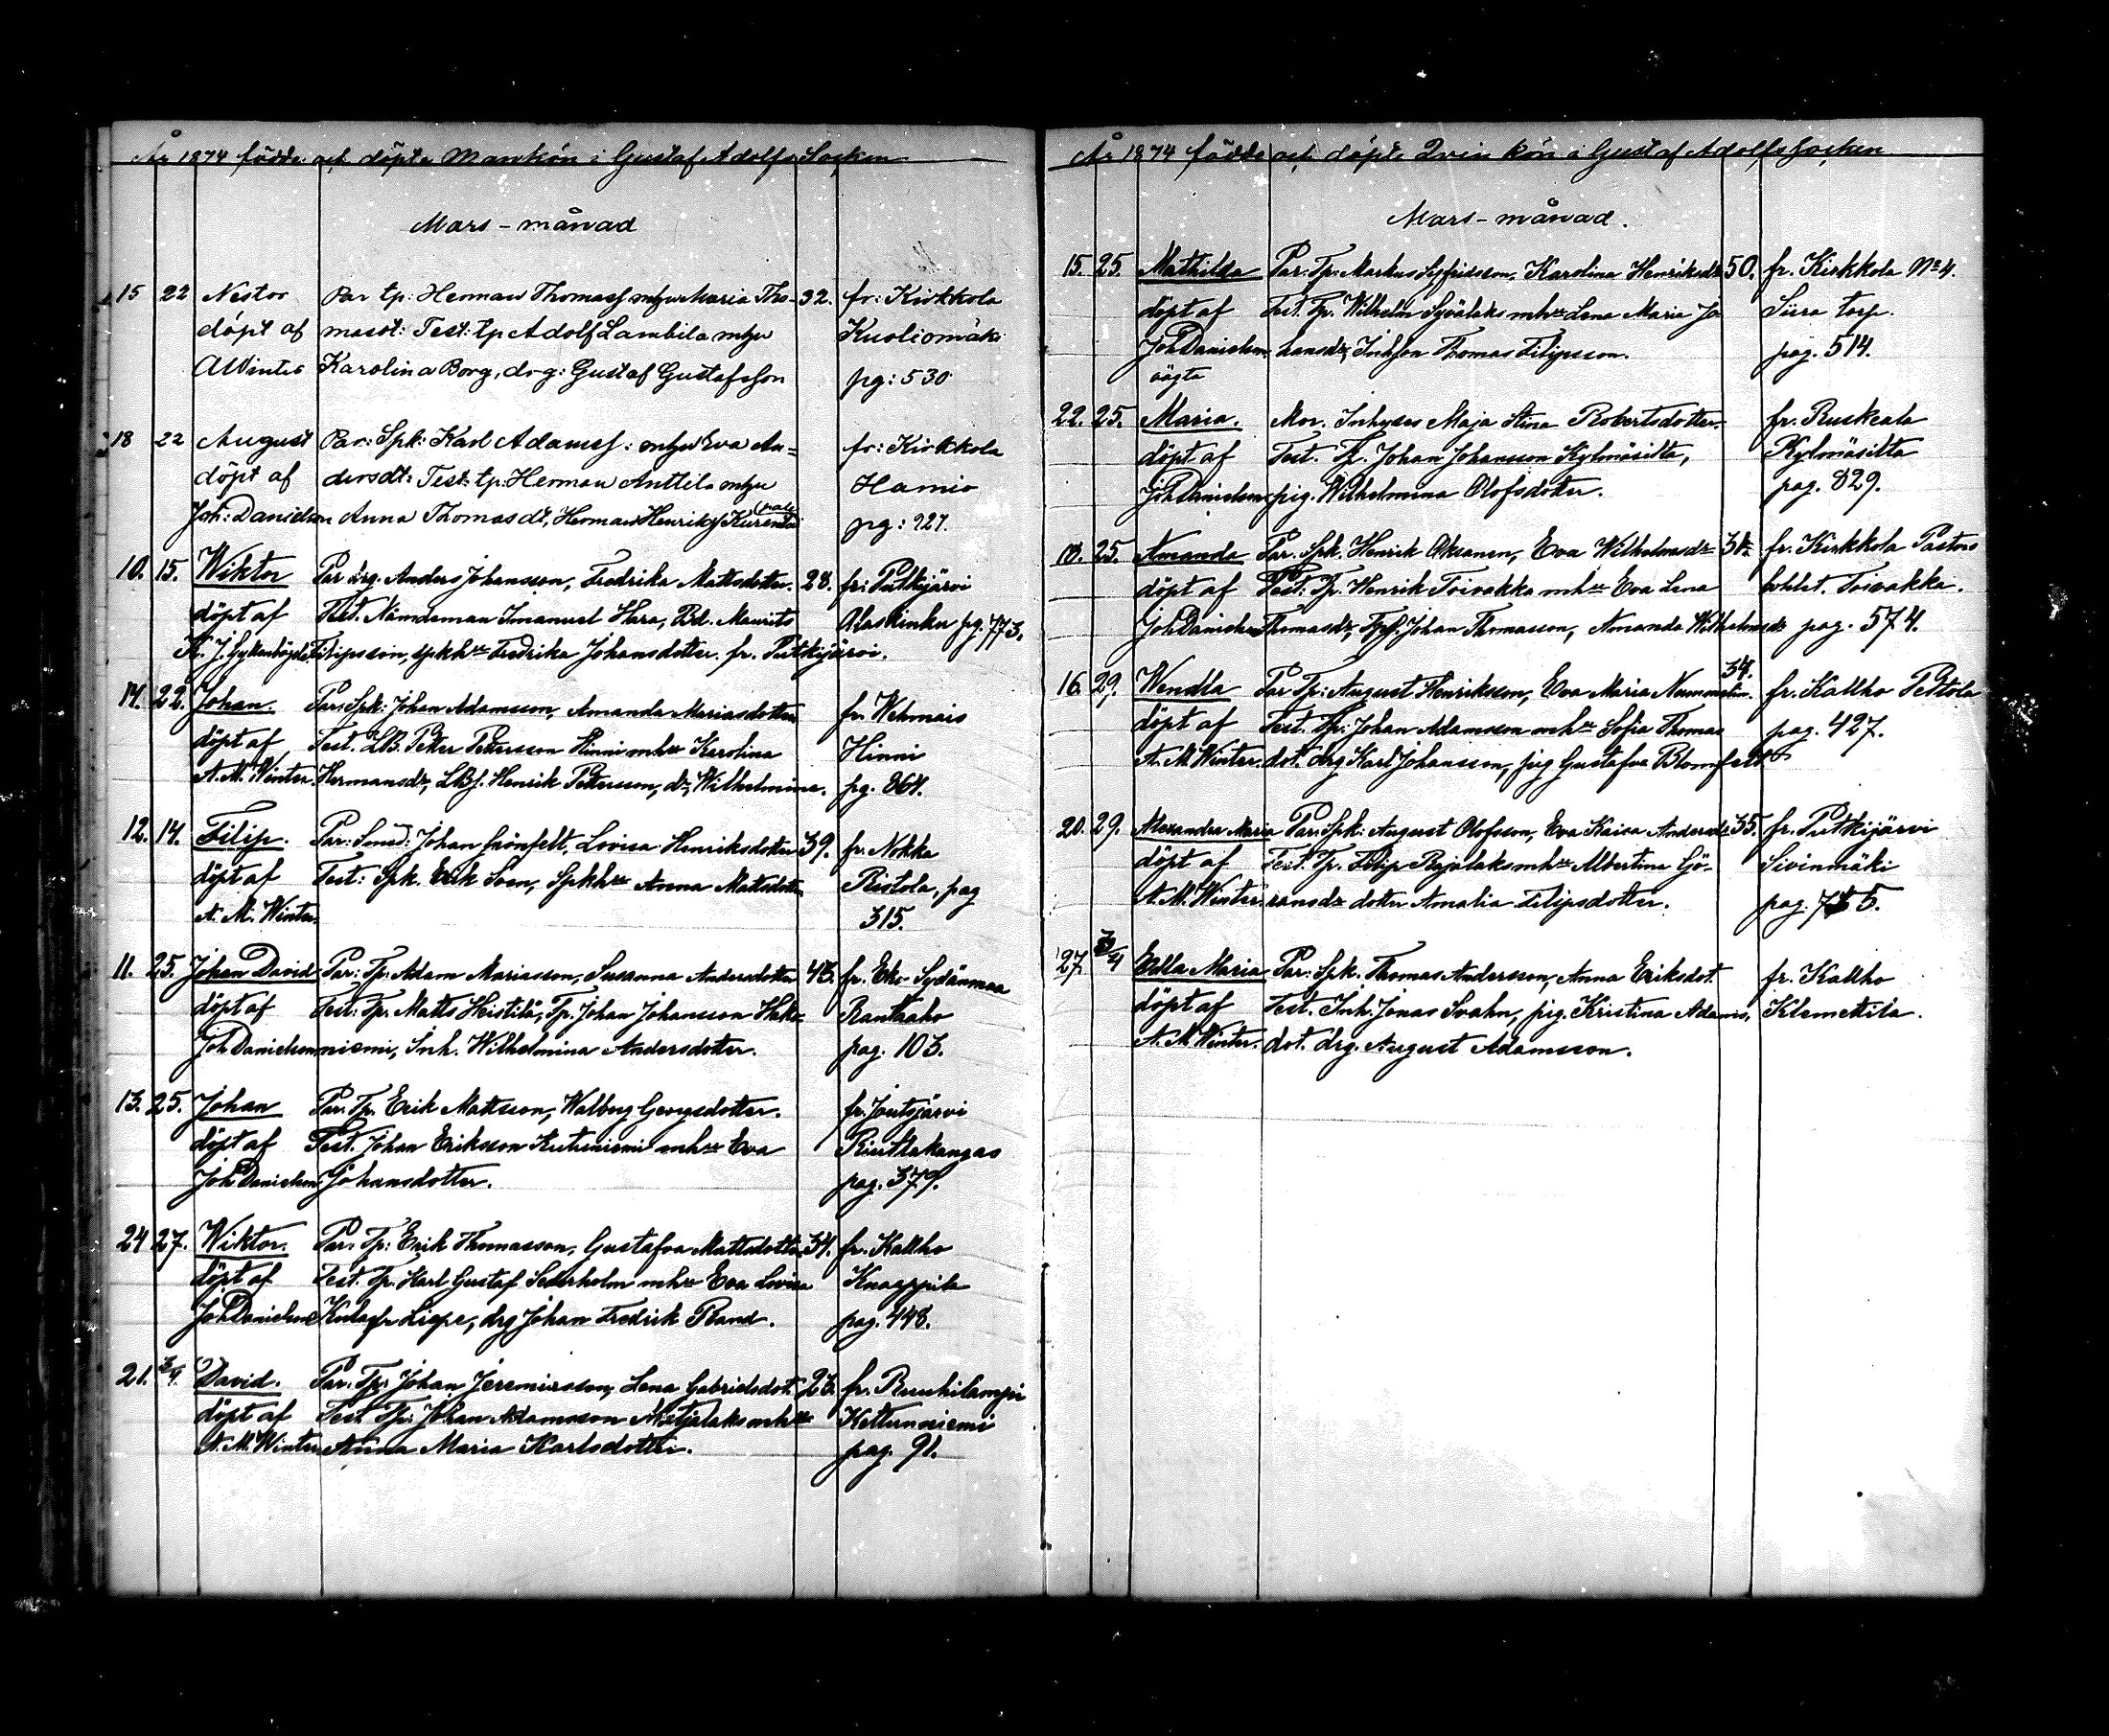 År 1874 födde och döpte Mankön i Gustaf Adolfs Socken
Mars-månad
15 22 Nestor Par tp: Herman Thomass mhu Maria Tho- 32. fr: Kirkkola
döpt af masdt: Test: tp Adolf Lambila mhu Kuoliomäki
AWinter Karolina Borg, drg: Gustaf Gustafsson pg: 530
18 22 August Par: Spk: Karl Adamss: mhu Eva An= fr: Kirkkola
döpt af dersdt: Test: tp: Herman Anttila mhu Hamio
Joh: Danielson Anna Thomasdt, Herman Henrikss pg: 927.
10. 15. Wiktor Par drg. Anders Johansson, Fredrika Mattsdotter. 28. fr. Putkijärvi
döpt af Test. Nämdeman Imanuel Hara, Bd. Maurits Alas Rinku pg. 773.
K. J. Filipsson, spkhu Fredrika Johansdotter. fr. Putkijärvi.
14. 22. Johan. Par: Spk: Johan Adamsson, Amanda Mariasdotter fr. Wehmais
döpt af Test. LB. Petter Pettersson Hinni mhu Karolina Hinni
A. M. Winter. Hermansdr, LBs. Henrik Pettersson, dr, Wilhelmina. pg. 864.
12. 14. Filip. Par: Smed: Johan Grönfelt, Lovisa Henriksdotter 39. fr. Nokka
döpt af Test: Spk. Erik Sven, Spkhu Anna Mattsdotter Ristola, pag
A. M. Winter. 315.
11. 25. Johan David Par: Tp. Adam Mariasson, Susanna Andersdotter 43. fr. Eko Sydänmaa
döpt af Test: Tp. Matts Heistilä, Tp. Johan Johansson Hake- Rantaaho
Joh Danielson niemi, Inh. Wilhelmina Andersdotter. pag. 103.
13. 25. Johan Par. Tp. Erik Mattsson, Walborg Georgsdotter. fr. Joutsjärvi
döpt af Test. Johan Eriksson Kutuniemi mhu Eva Riuttakangas
Joh Danielson Johansdotter. pag. 379.
24 27. Wiktor. Par. Tp: Erik Thomasson, Gustafva Mattsdotter 34. fr. Kalho
döpt af Test. Tp. Karl Gustaf Sederholm mhu Eva Lovisa Knaappila
Joh Danielson Liepe, drg Johan Fredrik Rand. pag. 448.
21. 3/4. David. Par. Tp: Johan Jeremiasson, Lena Gabrielsdot. 23. fr. Ruuhilampi
döpt af Test. Tp: Johan Adamsson mhu Kettunniemi
A. M. Winter Anna Maria Karlsdotter. pag. 91.
År 1874 födde och döpte Qvinkön i Gustaf Adolfs Socken
Mars-månad.
15. 25. Mathilda Par. Tp. Markus Sigfridsson, Karolina Henriksdr 50. fr. Kirkkola No 4.
döpt af Test. Tp. Wilhelm Syvälaks mhu Lena Maria Jo- Siira torp.
Joh Danielson hansdr, Inhson Thomas Filipsson. pag. 514.
oägta
22. 25. Maria. Mor. Inhyses Maja Stina Robertsdotter. fr. Ruskeala
döpt af Test. Tp. Johan Johansson Kylmäsilta, Kylmäsilta
Joh Danielson pig. Wilhelmina Olofsdotter. pag. 829.
18. 25. Amanda Par. Spk. Henrik Oksanen, Eva Wilhelmsdr fr. Kirkkola Pastors
döpt af Test: Tp. Henrik Toivakka mhu Eva Lena bohlst. Toivakka.
Joh Danielson Thomasdr, Johan Thomasson, Amanda Wilhelmsdr pag. 574.
16. 29. Wendla Par Tp: August Henriksson, Eva Maria Nummelin. 34. fr. Kalho Peltola
döpt af Test. Tp. Johan Adamsson mhu Sofia Thomas pag. 427.
A. M Winter. dot. drg Karl Johansson, pig Gustafva Blomfelt
20. 29. Alexandra Maria Par: Spk: August Olofsson, Eva Kaisa Andersdr 35. fr. Putkijärvi
döpt af Test. Tp. Filip Rajalaks mhu Albertina Gö- Sivinmäki
A. M. Winter. ransdr dotter Amalia Filipsdotter.
27. 3/4 Edla Maria Par: Spk. Thomas Andersson, Anna Eriksdot. fr. Kalho
döpt af Test. Inh. Jonas Svahn, pig. Kristina Adams, Klemettila.
A. M Winter. dot. drg. August Adamsson.